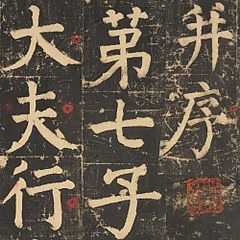 并序
第七子
大夫行